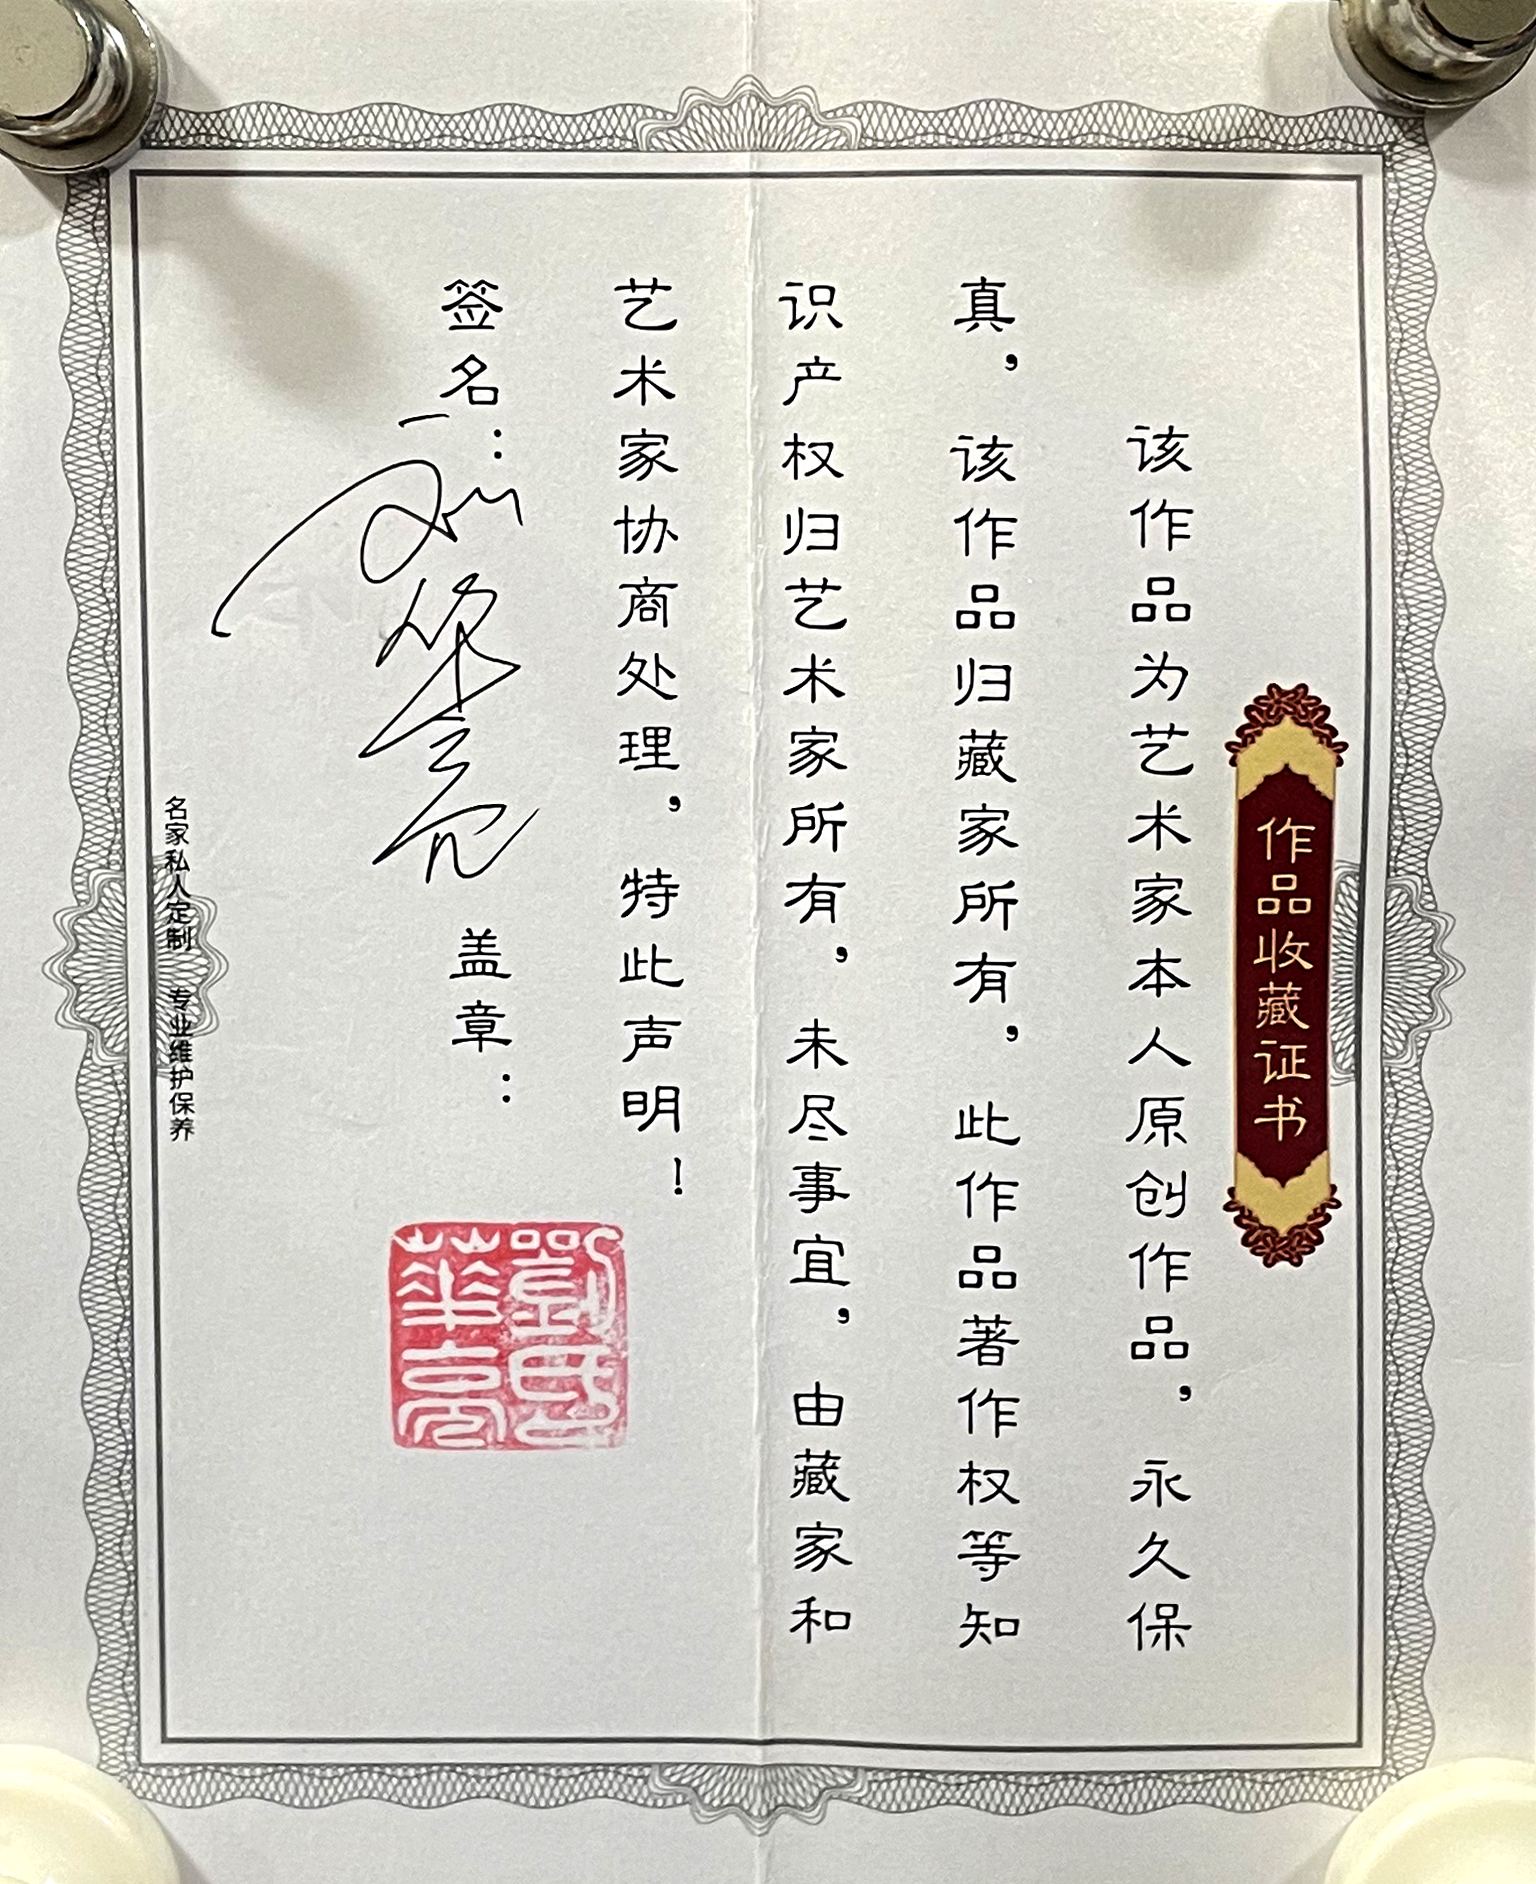 作品收藏证书
该作品为艺术家本人原创作品，永久保
真，该作品归藏家所有，此作品著作权等知
识产权归艺术家所有，未尽事宜，由藏家和
艺术家协商处理，特此声明！
签名：刘华亮 盖章：
劉氏
華亮
名家私人定制 专业维护保养